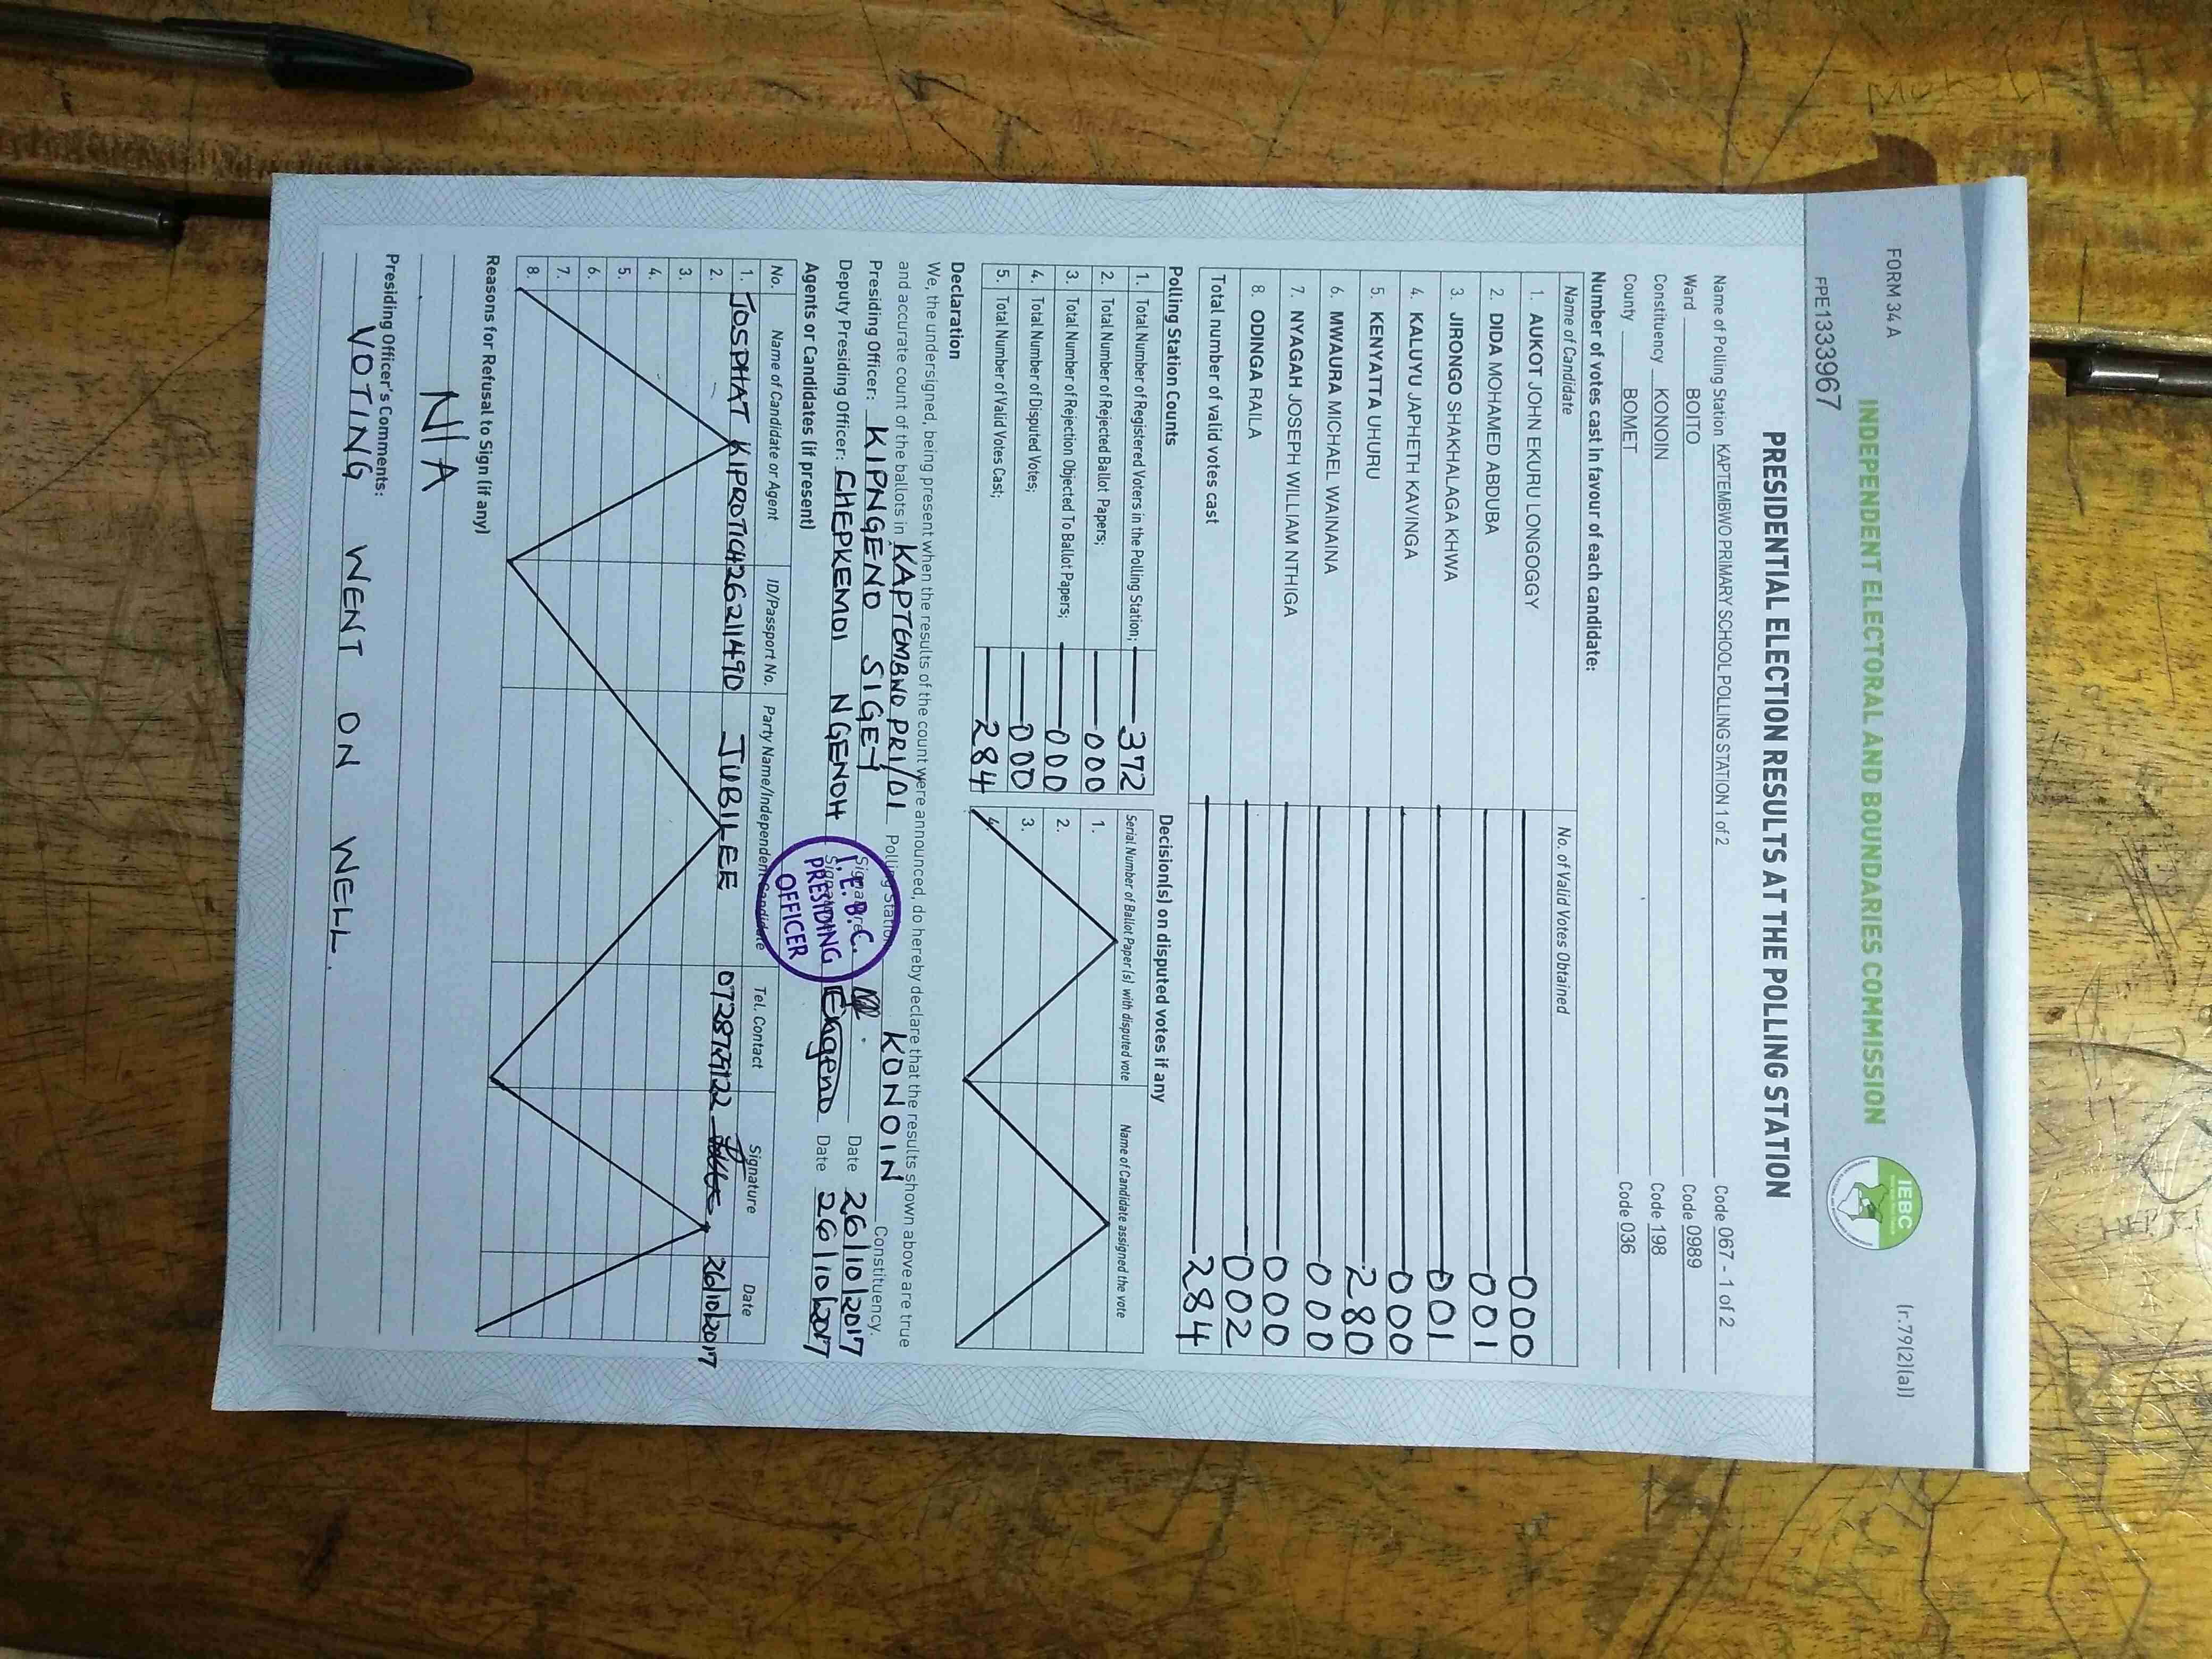 FORM 34 A
(r.79(2)(a))
INDEPENDENT ELECTORAL AND BOUNDARIES COMMISSION
IEBC
FPE1333967
PRESIDENTIAL ELECTION RESULTS AT THE POLLING STATION
Name of Polling Station KAPTEMBWO PRIMARY SCHOOL POLLING STATION 1 of 2 Code 067 - 1 of 2
Ward BOITO Code 0989
Constituency KONOIN Code 198
County BOMET Code 036
Number of votes cast in favour of each candidate:
Name of Candidate No. of Valid Votes Obtained
1. AUKOT JOHN EKURU LONGOGGY 000
2. DIDA MOHAMED ABDUBA 001
3. JIRONGO SHAKHALAGA KHWA 001
4. KALUYU JAPHETH KAVINGA 000
5. KENYATTA UHURU 280
6. MWAURA MICHAEL WAINAINA 000
7. NYAGAH JOSEPH WILLIAM NTHIGA 000
8. ODINGA RAILA 002
Total number of valid votes cast 284
Polling Station Counts
1. Total Number of Registered Voters in the Polling Station; 372
2. Total Number of Rejected Ballot Papers; 000
3. Total Number of Rejection Objected To Ballot Papers; 000
4. Total Number of Disputed Votes; 000
5. Total Number of Valid Votes Cast; 284
Decision(s) on disputed votes if any
Serial Number of Ballot Paper (s) with disputed vote Name of Candidate assigned the vote
1.
2.
3.
4.
Declaration
We, the undersigned, being present when the results of the count were announced, do hereby declare that the results shown above are true
and accurate count of the ballots in KAPTEMBWO PRI/01 Polling Station KONOIN Constituency.
Presiding Officer: KIPNGENO SIGEY Signature Date 26/10/2017
Deputy Presiding Officer: CHEPKEMOI NGENOH Signature Date 26/10/2017
I.E.B.C.
PRESIDING
OFFICER
Agents or Candidates (if present)
No. Name of Candidate or Agent ID/Passport No. Party Name/Independent Candidate Tel. Contact Signature Date
1. JOSPHAT KIPROTICH 26211490 JUBILEE 26/10/2017
2.
3.
4.
5.
6.
7.
8.
Reasons for Refusal to Sign (if any)
N/A
Presiding Officer's Comments:
VOTING WENT ON WELL.